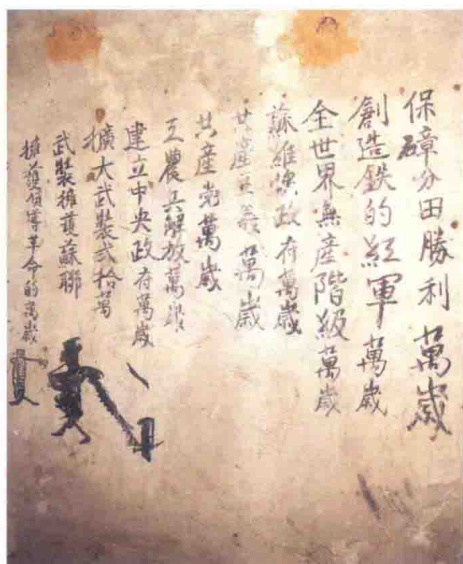 保障分田勝利萬歲
創造鉄的紅軍萬歲
全世界無產階級萬歲
蘇維埃政府萬歲
共產主義萬歲
共產党萬歲
工農兵解放萬歲
建立中央政府萬歲
擴大武裝弍拾萬
武裝擁護蘇聯
擁護領導革命的萬歲